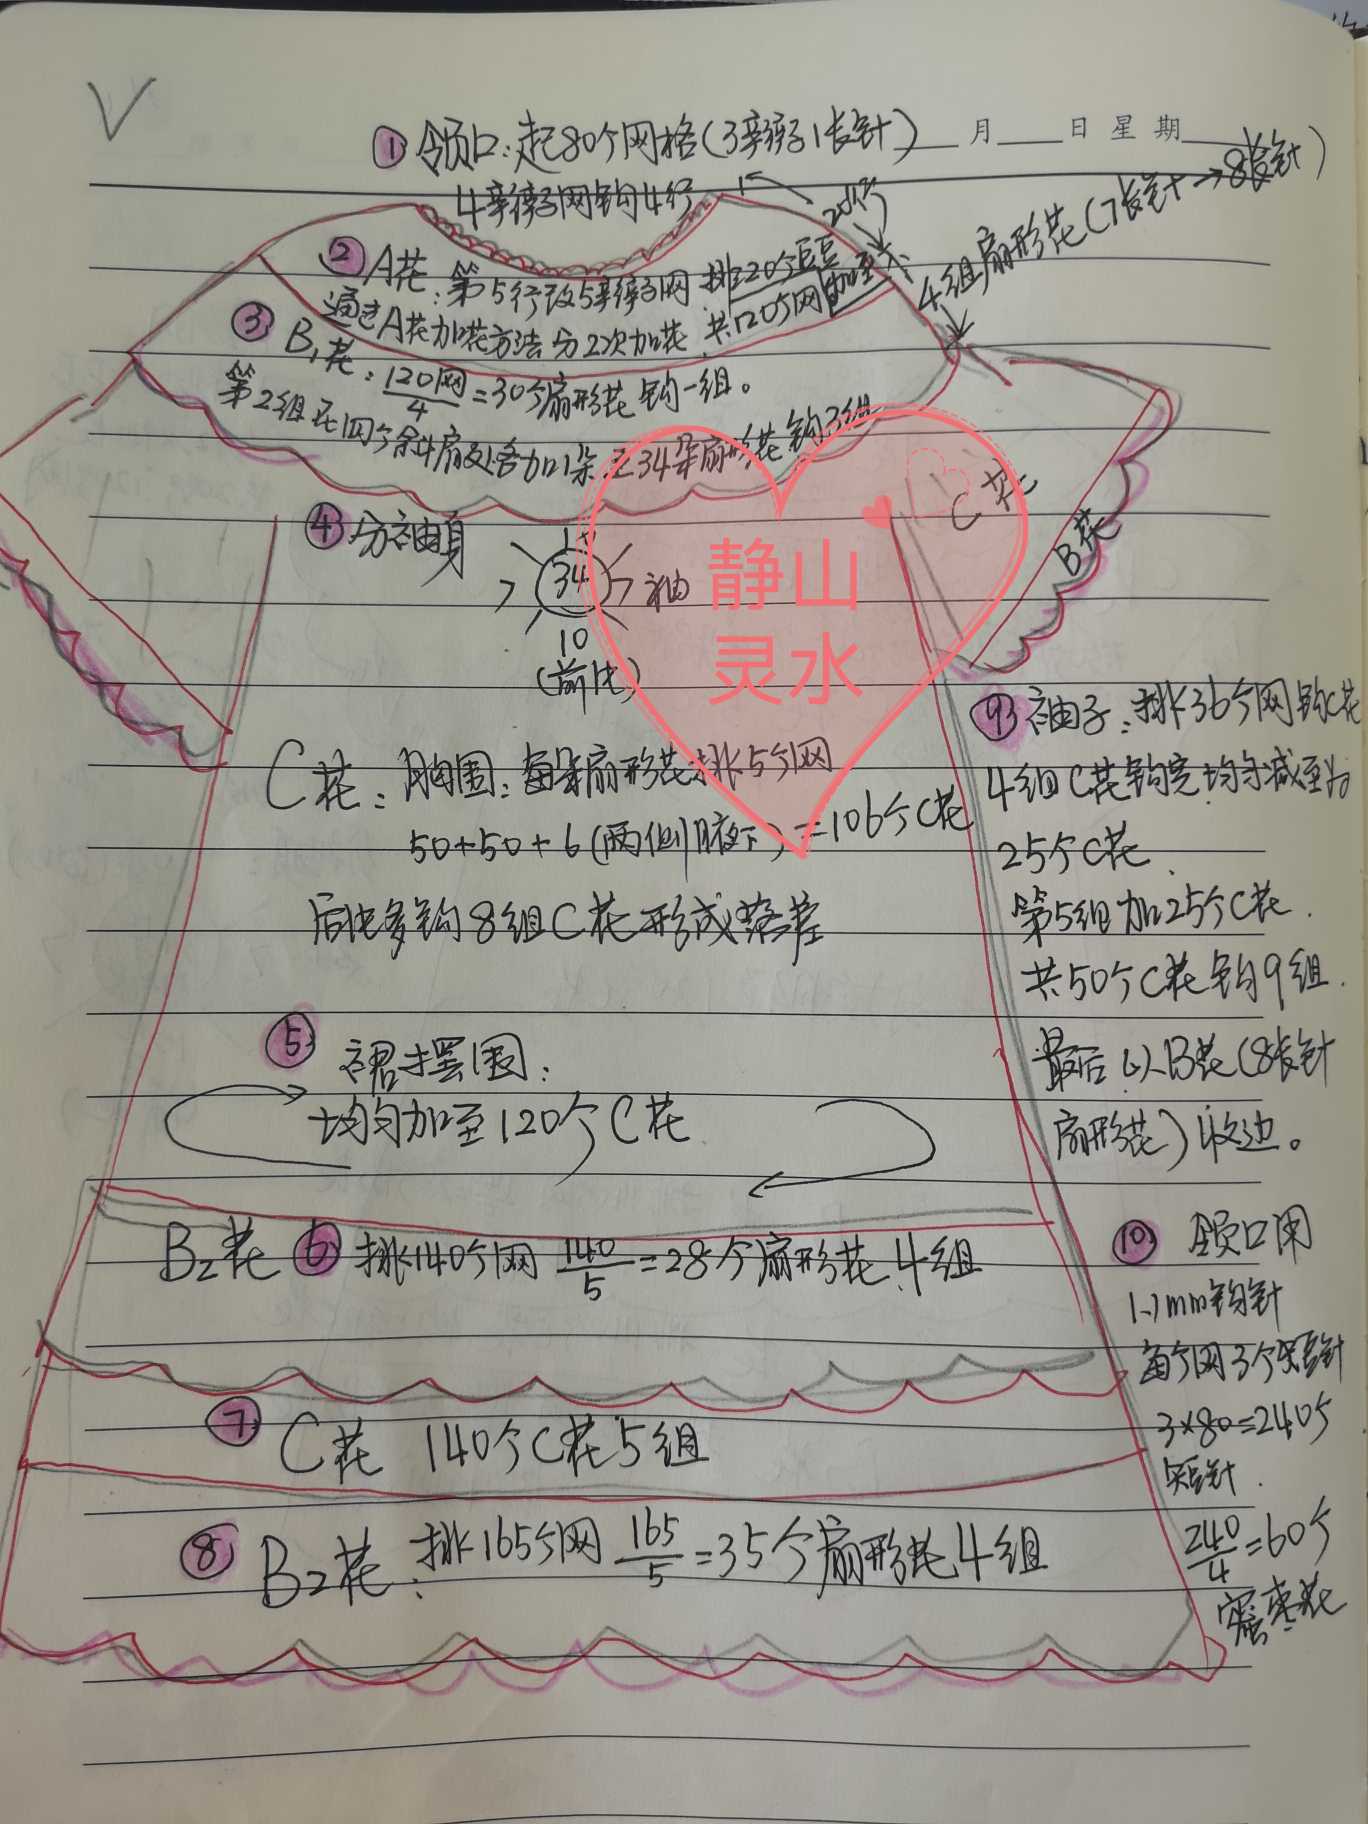 ① 领口:起80个网格(3辫子1长针)
月 日 星期
4辫子网钩4行
20行
4组扇形花(7长针→8长针)
② A花:第5行改5辫子网 排20个豆豆
通过A花加花方法分2次加花 共120个网
③ B1花:120网/4=30个扇形花 钩一组。
第2组在四个斜扇处各加1朵至34朵扇形花 钩3组
④ 分袖身
34 7袖
7
10
(前片)
C花
B花
静山
灵水
C花:胸围:每朵扇形花排5个网
50+50+6(两侧腋下)=106个C花
后片多钩8组C花形成落差
⑤ 裙摆围:
均匀加至120个C花
B2花 ⑥ 排140个网 140/5=28个扇形花 4组
⑦ C花 140个C花5组
⑧ B2花:排165个网 165/5=35个扇形花4组
⑨ 袖子:排36个网钩C花
4组C花钩完 均匀减至为
25个C花
第5组加25个C花.
共50个C花钩9组.
最后以B花(8长针
扇形花)收边。
⑩ 领口用
1.1mm钩针
每个网3个短针
3×80=240个
短针.
240/4=60个